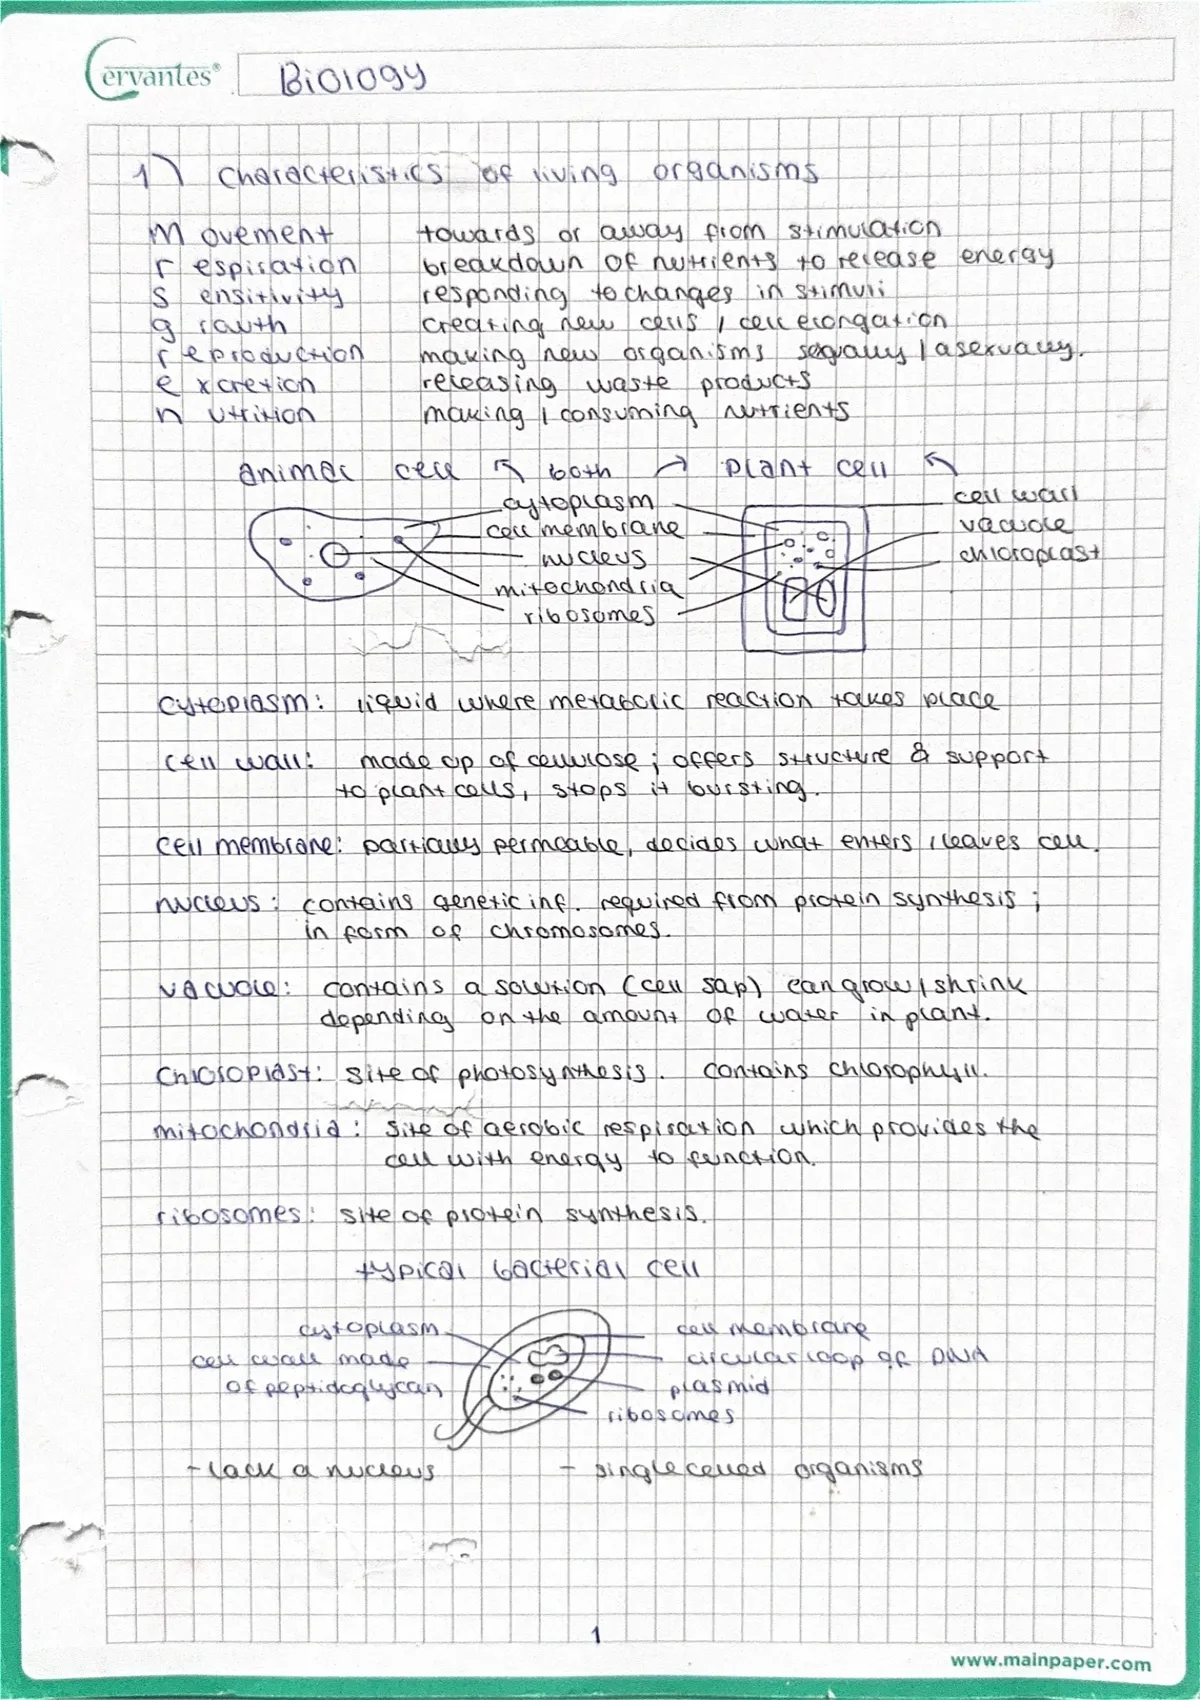 Cervantes®
Biology
1) Characteristics of living organisms
Movement towards or away from stimulation
respiration breakdown of nutrients to release energy
sensitivity responding to changes in stimuli
growth creating new cells / cell elongation
reproduction making new organisms sexually / asexually.
excretion releasing waste products
nutrition making / consuming nutrients
animal cell ↖ both ↗ plant cell ↖
cytoplasm cell wall
cell membrane vacuole
nucleus chloroplast
mitochondria
ribosomes
cytoplasm: liquid where metabolic reaction takes place
cell wall: made up of cellulose; offers structure & support
to plant cells, stops it bursting.
cell membrane: partially permeable, decides what enters / leaves cell.
nucleus: contains genetic inf. required from protein synthesis;
in form of chromosomes.
vacuole: contains a solution (cell sap) can grow / shrink
depending on the amount of water in plant.
Chloroplast: site of photosynthesis. contains chlorophyll.
mitochondria: site of aerobic respiration which provides the
cell with energy to function.
ribosomes: site of protein synthesis.
typical bacterial cell
cytoplasm cell membrane
cell wall made circular loop of DNA
of peptidoglycan plasmid
ribosomes
- lack a nucleus - single celled organisms
1
www.mainpaper.com